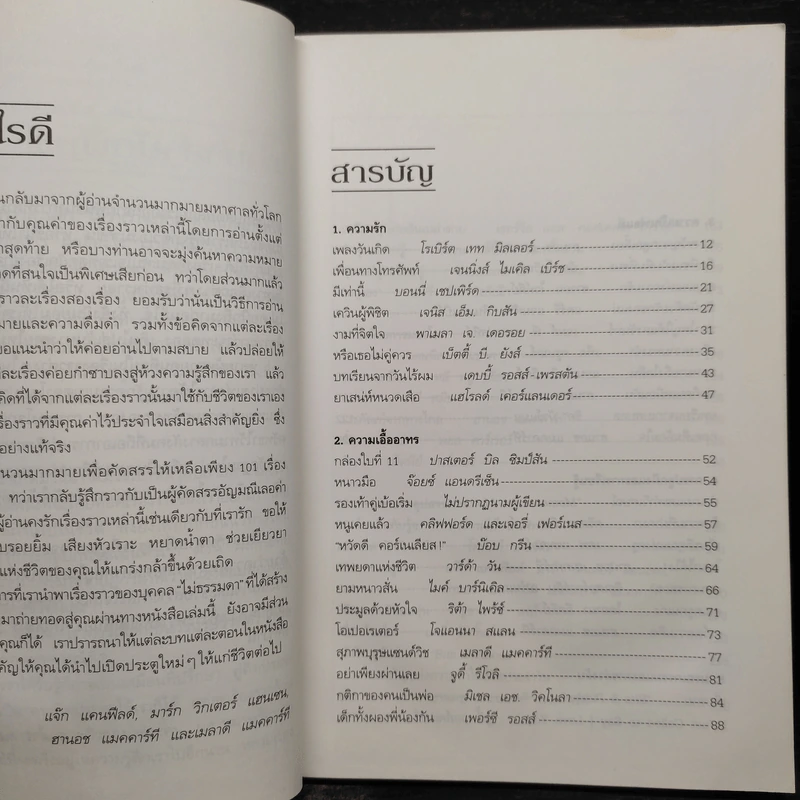 ไรดี
นกลับมาจากผู้อ่านจำนวนมากมายมหาศาลทั่วโลก
ากับคุณค่าของเรื่องราวเหล่านี้โดยการอ่านตั้งแต่
าสุดท้าย หรือบางท่านอาจจะมุ่งค้นหาความหมาย
ดที่สนใจเป็นพิเศษเสียก่อน ทว่าโดยส่วนมากแล้ว
ราวละเรื่องสองเรื่อง ยอมรับว่านั่นเป็นวิธีการอ่าน
มายและความดื่มด่ำ รวมทั้งข้อคิดจากแต่ละเรื่อง
ขอแนะนำว่าให้ค่อยอ่านไปตามสบาย แล้วปล่อยให้
ละเรื่องค่อยกำซาบลงสู่ห้วงความรู้สึกของเรา แล้ว
คิดที่ได้จากแต่ละเรื่องราวนั้นมาใช้กับชีวิตของเราเอง
รื่องราวที่มีคุณค่าไว้ประจำใจเสมือนสิ่งสำคัญยิ่ง ซึ่ง
อย่างแท้จริง
นวนมากมายเพื่อคัดสรรให้เหลือเพียง 101 เรื่อง
ทว่าเรากลับรู้สึกราวกับเป็นผู้คัดสรรอัญมณีเลอค่า
ผู้อ่านคงรักเรื่องราวเหล่านี้เช่นเดียวกับที่เรารัก ขอให้
บรอยยิ้ม เสียงหัวเราะ หยาดน้ำตา ช่วยเยียวยา
แห่งชีวิตของคุณให้แกร่งกล้าขึ้นด้วยเถิด
การที่เรานำพาเรื่องราวของบุคคล "ไม่ธรรมดา" ที่ได้สร้าง
มาถ่ายทอดสู่คุณผ่านทางหนังสือเล่มนี้ ยังอาจมีส่วน
คุณก็ได้ เราปรารถนาให้แต่ละบทแต่ละตอนในหนังสือ
คัญให้คุณได้นำไปเปิดประตูใหม่ๆ ให้แก่ชีวิตต่อไป
แจ๊ก แคนฟิลด์, มาร์ก วิกเตอร์ แฮนเซน,
ฮานอช แมคคาร์ที และเมลาดี แมคคาร์ที
สารบัญ
1. ความรัก
เพลงวันเกิด โรเบิร์ต เทท มิลเลอร์ 12
เพื่อนทางโทรศัพท์ เจนนิ่งส์ ไมเคิล เบิร์ช 16
มีเท่านี้ บอนนี่ เชปเพิร์ด 21
เควินผู้พิชิต เจนิส เอ็ม. กิบสัน 27
งามที่จิตใจ พาเมลา เจ. เดอรอย 31
หรือเธอไม่คู่ควร เบ็ตตี้ บี. ยังส์ 35
บทเรียนจากวันไร้ผม เดบบี้ รอสส์-เพรสตัน 43
ยาเสน่ห์หนวดเสือ แฮโรลด์ เคอร์แลนเดอร์ 47
2. ความเอื้ออาทร
กล่องใบที่ 11 ปาสเตอร์ บิล ซิมป์สัน 52
หนาวมือ จ๊อยซ์ แอนดรีเซ็น 54
รองเท้าคู่เบ้อเริ่ม ไม่ปรากฏนามผู้เขียน 55
หนูเคยแล้ว คลิฟฟอร์ด และเจอรี่ เฟอร์เนส 57
"หวัดดี คอร์เนเลียส!" บ๊อบ กรีน 59
เทพยดาแห่งชีวิต วาร์ด้า วัน 64
ยามหนาวสั่น ไมค์ บาร์นิเคิล 66
ประมูลด้วยหัวใจ ริต้า ไพร้ซ์ 71
โอเปอเรเตอร์ โจแอนนา สแลน 73
สุภาพบุรุษแซนด์วิช เมลาดี แมคคาร์ที 77
อย่าเพียงผ่านเลย จูดี้ รีโวลิ 81
กติกาของคนเป็นพ่อ มิเชล เอช. วิคโนลา 84
เด็กทั้งผองพี่น้องกัน เพอร์ซี รอสส์ 88